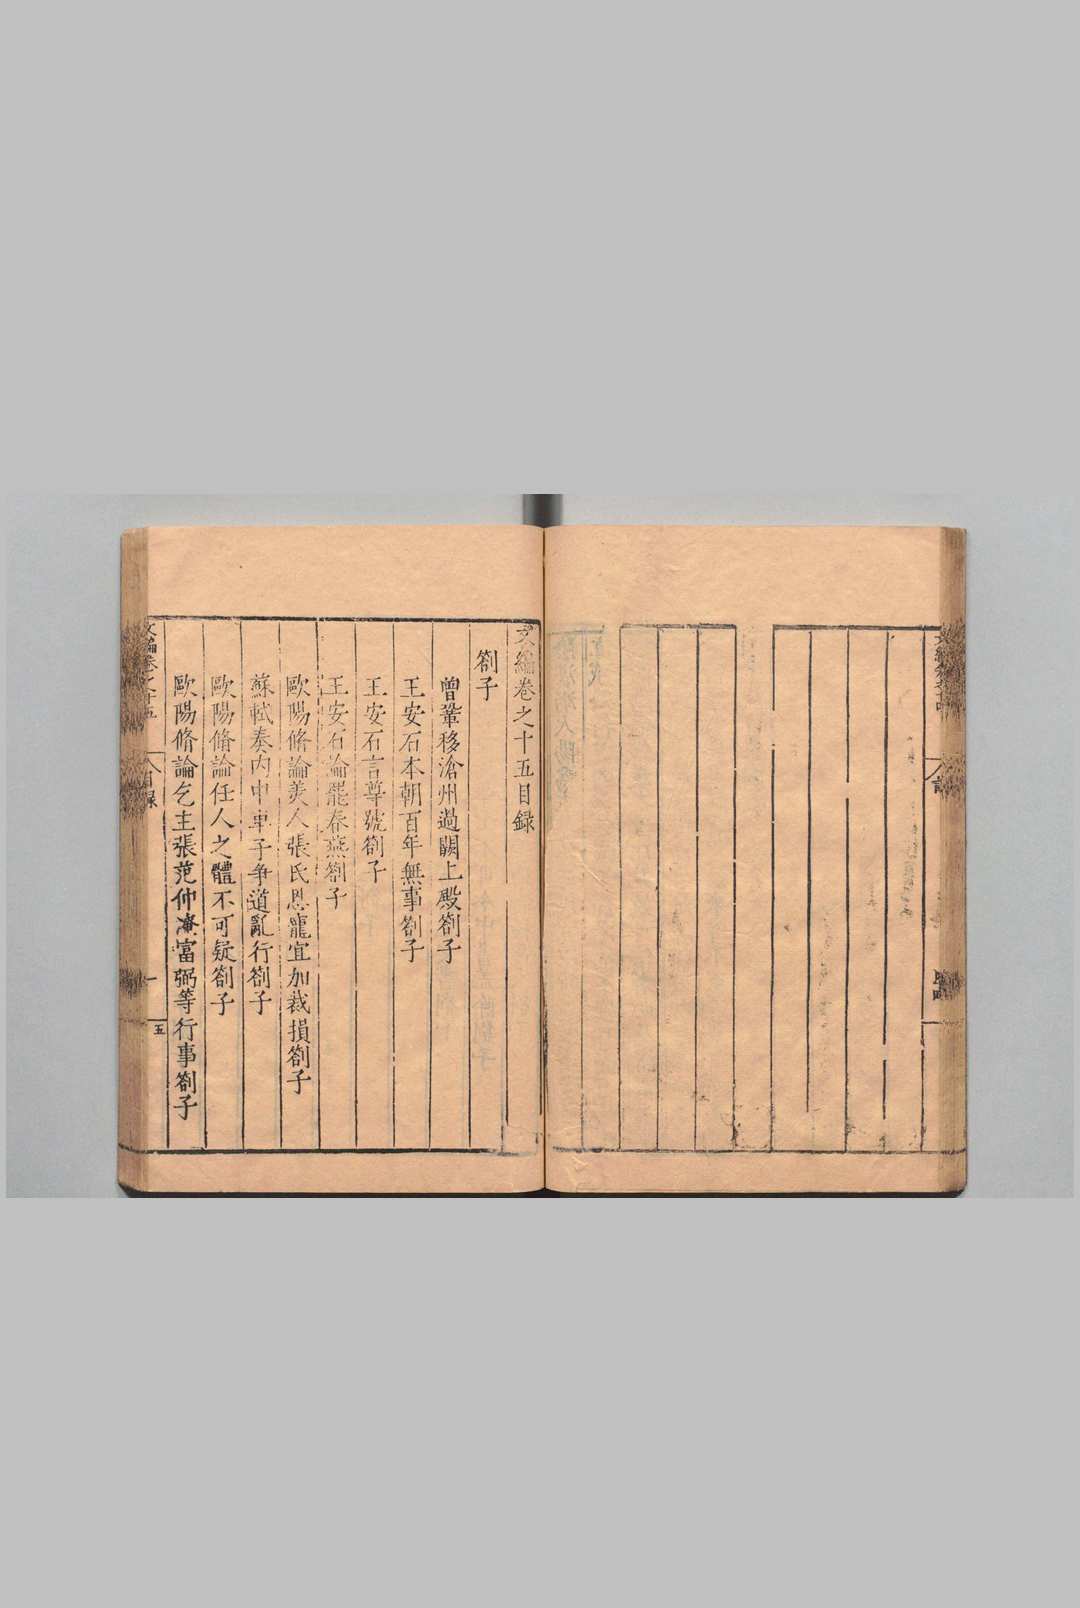 文編卷之十五目録
劄子
曾鞏移滄州過闕上殿劄子
王安石本朝百年無事劄子
王安石言尊號劄子
王安石論罷春燕劄子
歐陽脩論美人張氏恩寵宜加裁損劄子
蘇軾奏内中車子争道亂行劄子
歐陽脩論任人之體不可疑劄子
歐陽脩論乞主張范仲淹富弼等行事劄子
文編卷之十五
目録
一
五